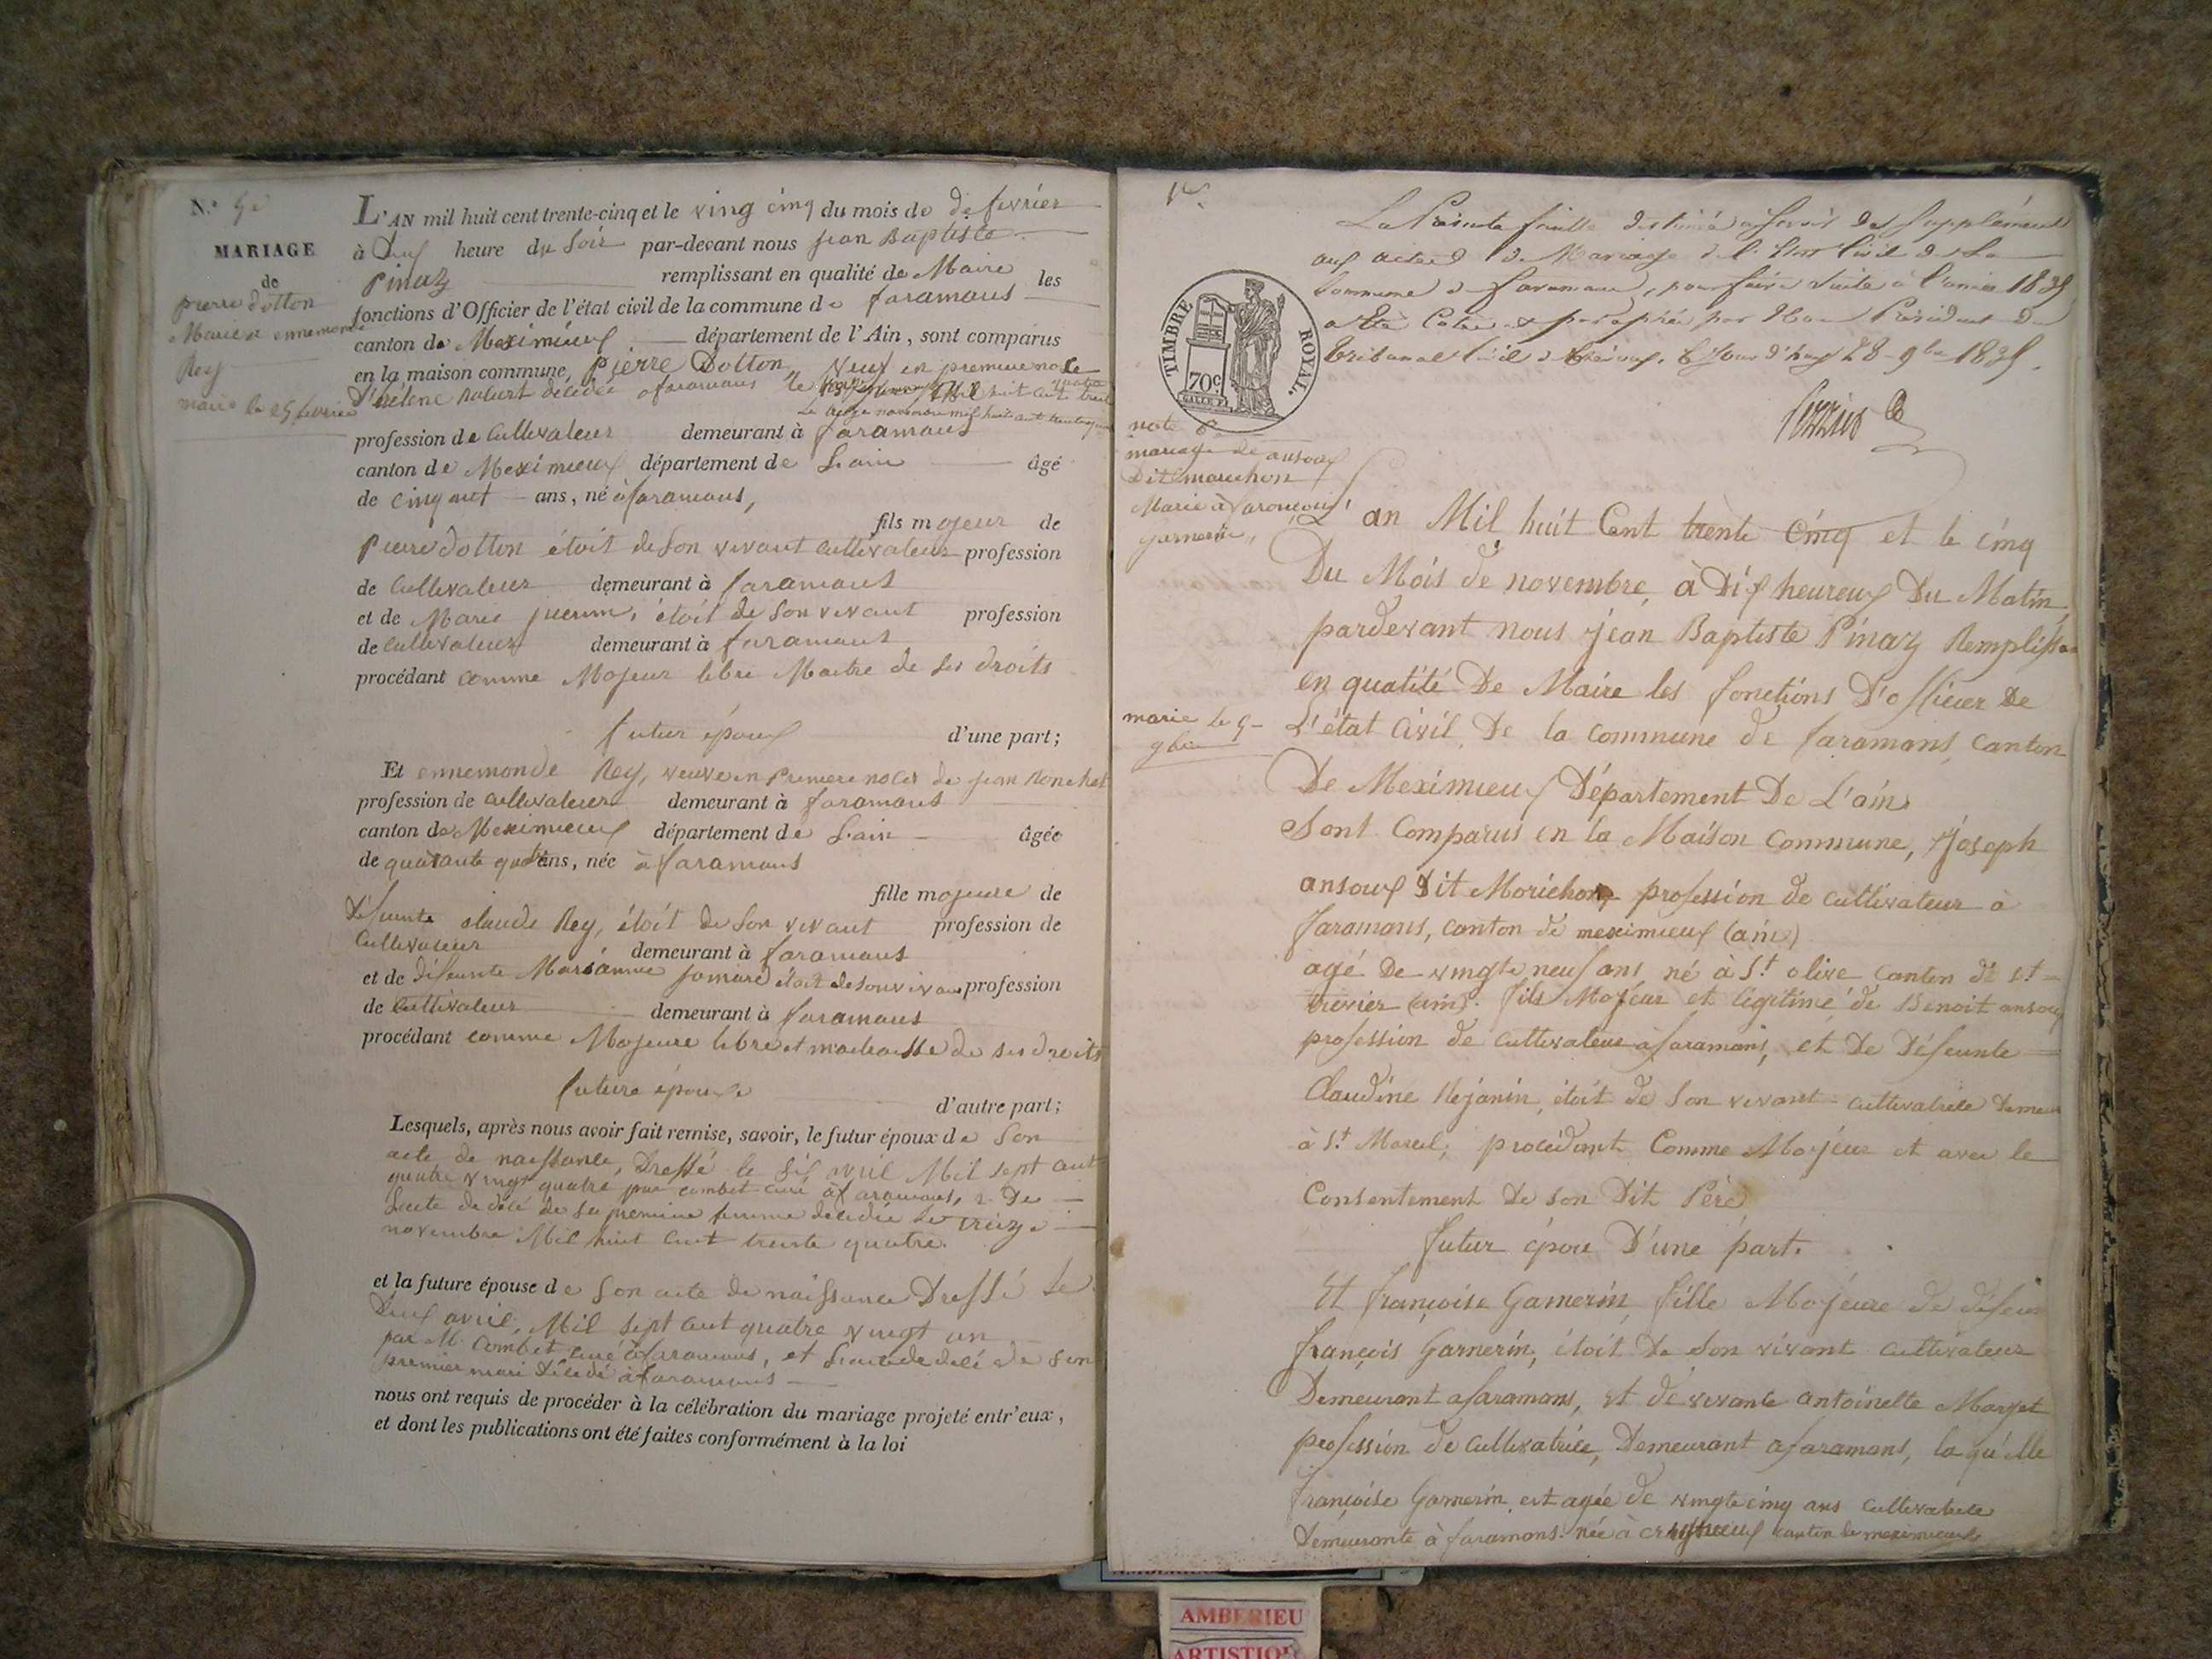 N.º 5e
MARIAGE
de
pierre dotton
Marie à ennemonde
Rey
marié le 25 fevrier
L'AN mil huit cent trente-cinq et le ving cinq du mois de de fevrier
à deux heure du soir par-devant nous jean Baptiste
Pinaz remplissant en qualité de Maire les
fonctions d'Officier de l'état civil de la commune de faramans
canton de Meximieux département de l'Ain, sont comparus
en la maison commune, pierre Dotton, veuf en premiere noce
d'hélène Robert décédée a faramans le
Le treize novembre mil huit cent trente quatre
profession de Cultivateur demeurant à faramans
canton de Meximieux département de L'ain âgé
de cinquante ans, né à faramans,
fils majeur de
Pierre dotton étoit de son vivant cultivateur profession
de Cultivateur demeurant à faramans
et de Marie étoit de son vivant profession
de cultivateur demeurant à faramans
procédant comme Majeur libre Maitre de ses droits
futur époux d'une part;
Et ennemonde Rey, veuve en Premiere noces de jean
profession de cultivateur demeurant à faramans
canton de Meximieux département de L'ain âgée
de quatante quatre ans, née à faramans
fille majeure de
défunte claude Rey, étoit de son vivant profession de
Cultivateur demeurant à faramans
et de défunte Marianne étoit de son vivant profession
de cultivateur demeurant à faramans
procédant comme Majeure libre et maitresse de ses droits
future épouse d'autre part;
Lesquels, après nous avoir fait remise, savoir, le futur époux de son
acte de naissance, Dressé le six avril Mil sept cent
quatre vingt quatre par combet curé à faramans, 2. De
Lacte de décé de sa premiere femme décédée le treize
novembre Mil huit cent trente quatre.
et la future épouse de son acte de naissance Dressé le
Deux avril, Mil sept cent quatre vingt un
par M. Combet curé à faramans, et Lacte de décé de son
premier mari décédé à faramans
nous ont requis de procéder à la célébration du mariage projeté entr'eux,
et dont les publications ont été faites conformément à la loi
La Présente feuille destinée à servir de Supplément
aux actes de Mariage de l'Etat Civil de La
Commune de faramans, pour faire suite à l'année 1835
a été Cotée et paraphée par Nous Président du
tribunal Civil de Trévoux. Ce jour d'huy 28 9bre 1835.
TIMBRE ROYAL.
70c
note 6
mariage de ansoux
Dit marichon
Marie à
garnerin,
marie le 5
9bre
L'an Mil huit Cent trente Cinq et le cinq
Du Mois de novembre, à Dix heureux Du Matin,
pardevant nous jean Baptiste Pinaz Remplissan
en qualité De Maire les fonctions D'officier De
L'état Civil De la commune de faramans, canton
De Meximieux Département De L'ain
Sont Comparus en la Maison commune, joseph
ansoux dit Morichon profession de cultivateur à
faramans, canton de meximieux (ain)
agé De vingte neuf ans né à St. olive canton de st-
trevier (ain). fils Majeur et légitime de Benoit ansoux
profession de cultivateur a faramans, et De Défeunte
Claudine Rejanin, étoit de son vivant cultivatrice
à St. Marcel, procédant Comme Majeur et avec le
Consentement De son Dit Père
futur époux D'une part.
Et françoise Garnerin fille Majeure de défeun
françois Garnerin, étoit De son vivant cultivateur
Demeurant a faramans, et de vivante antoinette Marget
profession de cultivatrice, Demeurant a faramans, la qu'elle
françoise Garnerin est agée de vingte cinq ans cultivatrice
Demeurante à faramans. née à canton de meximieux
AMBERIEU
ARTISTIQUE